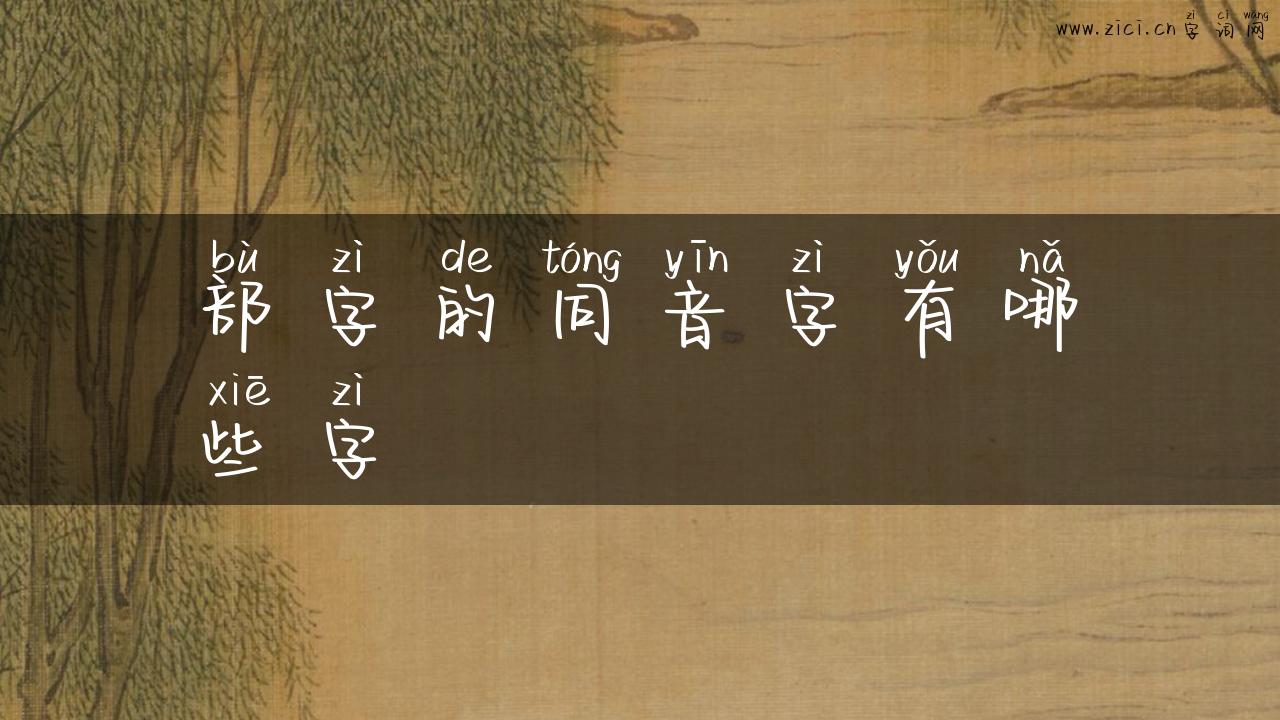 zì cí wǎng
www.zici.cn 字 词 网
bù zì de tóng yīn zì yǒu nǎ
部 字 的 同 音 字 有 哪
xiē zì
些 字